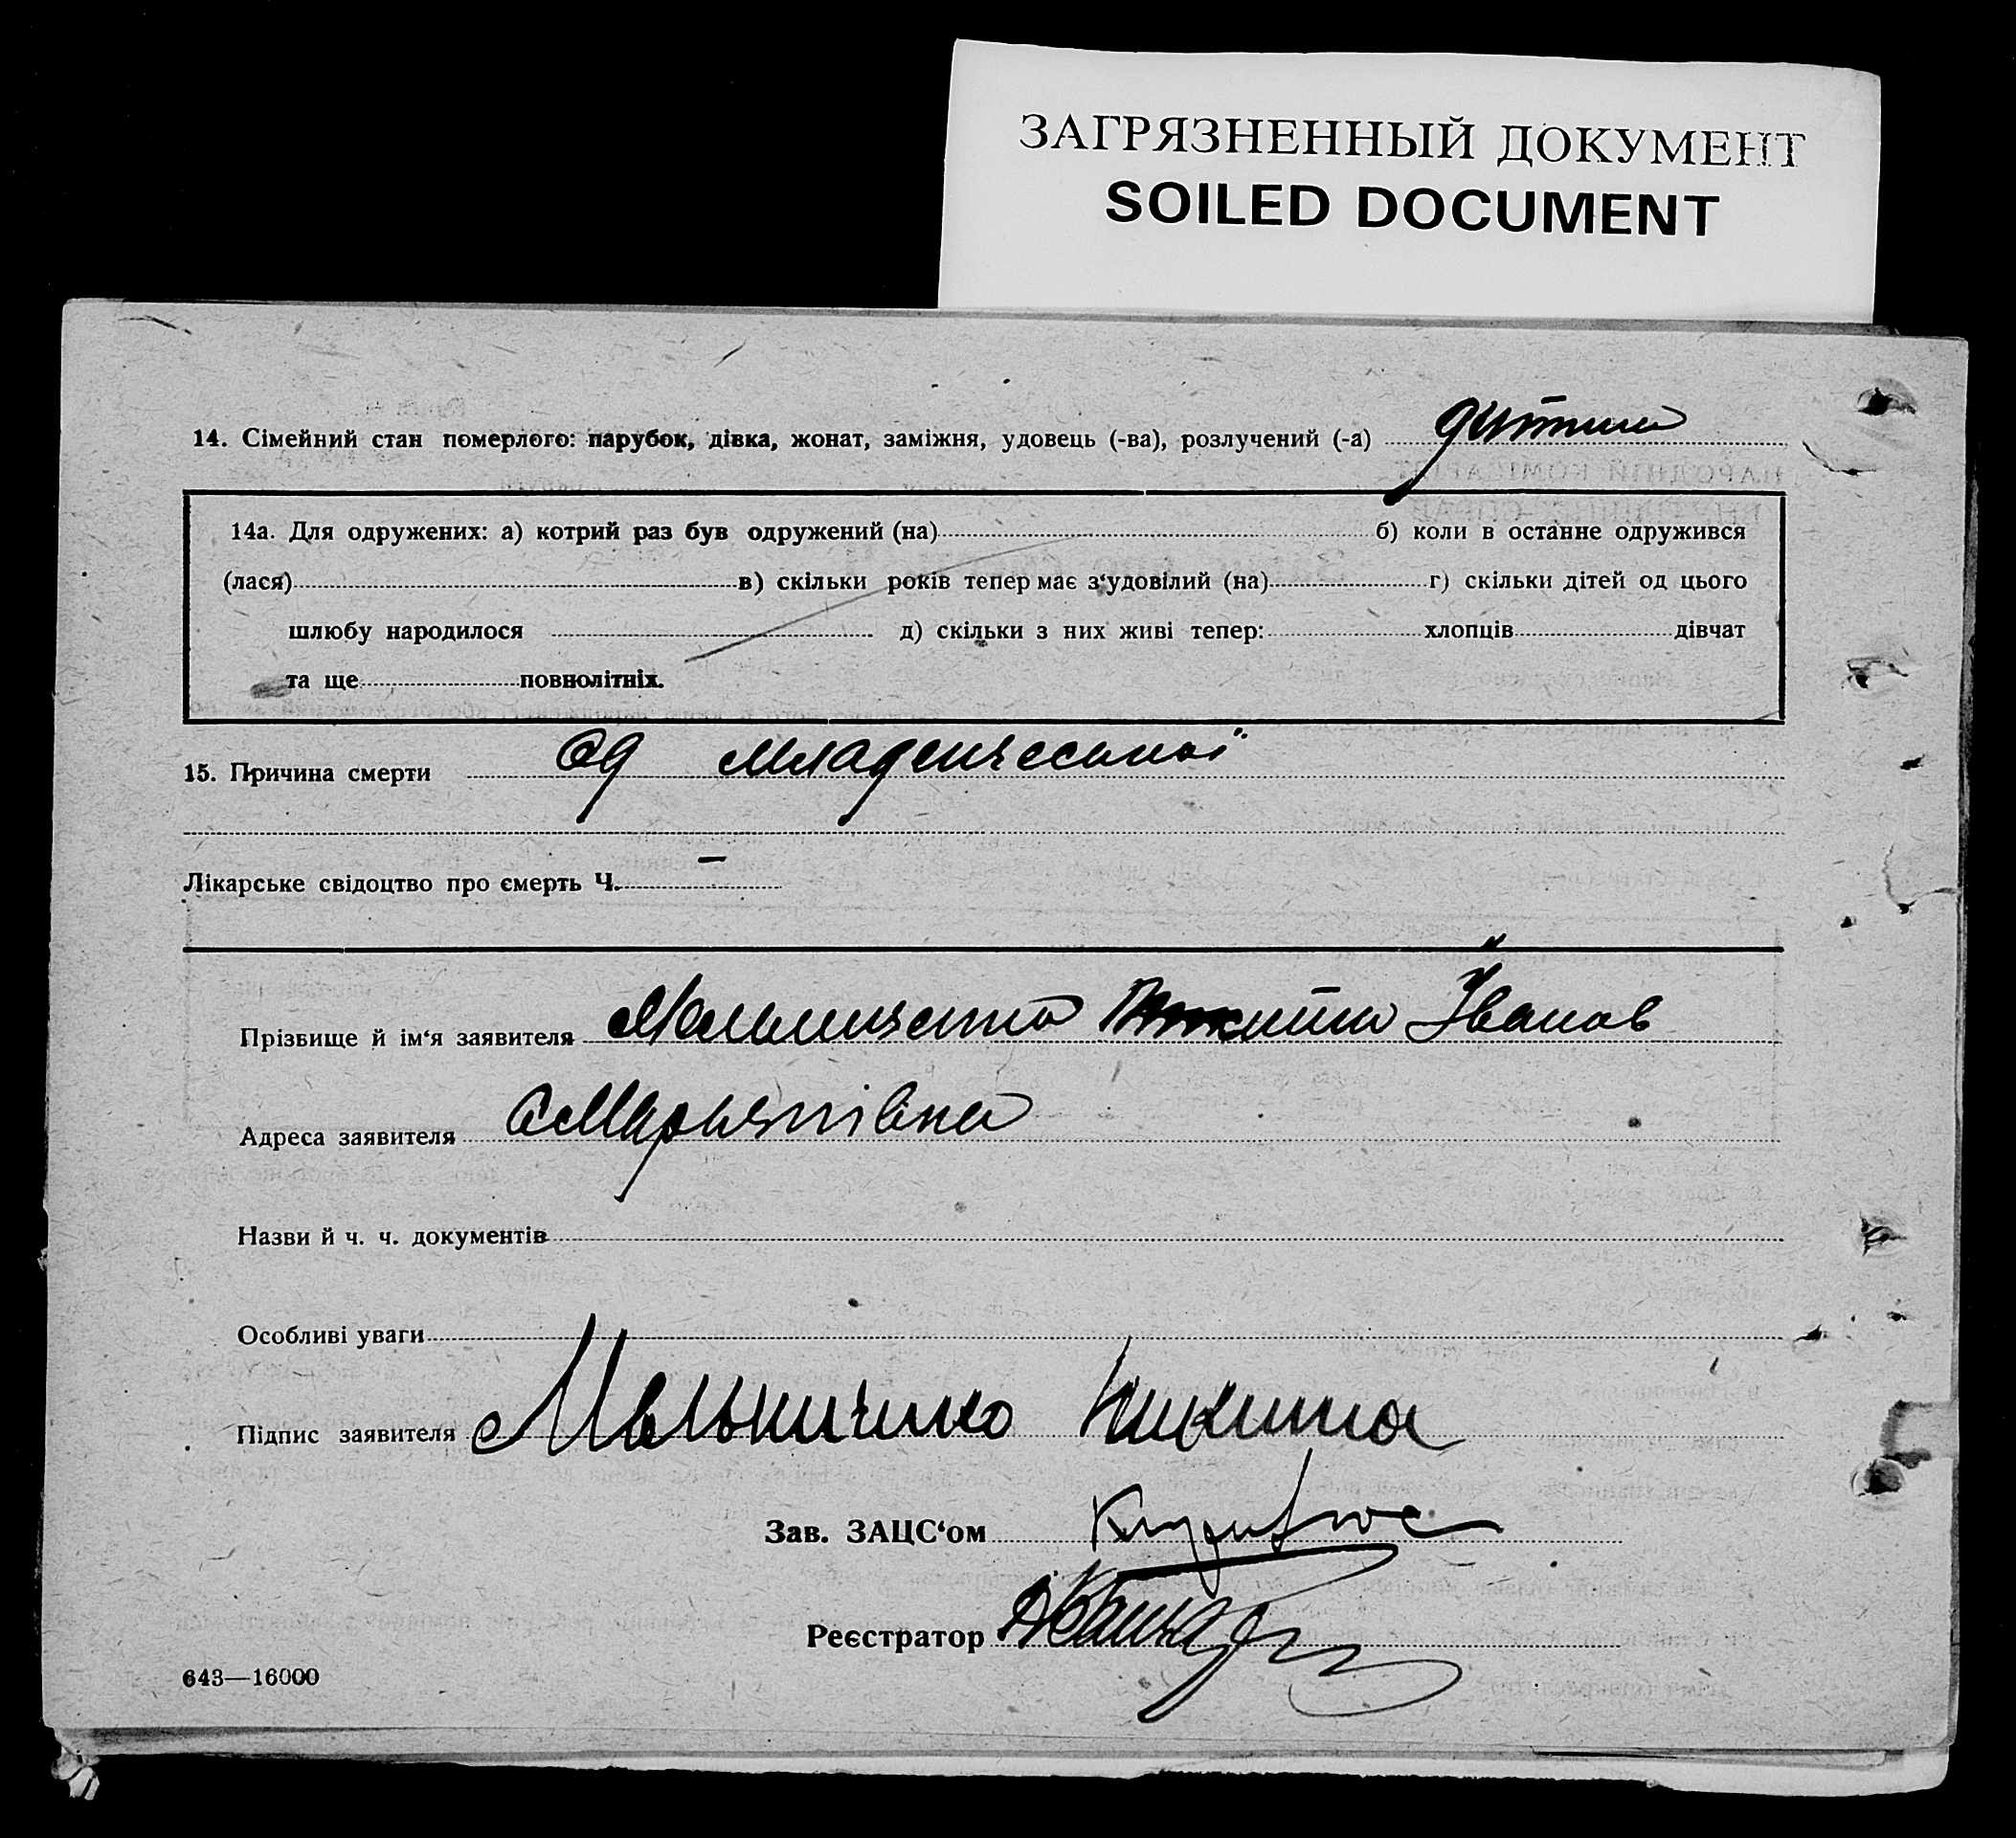 ЗАГРЯЗНЕННЫЙ ДОКУМЕНТ
SOILED DOCUMENT
14. Сімейний стан померлого: парубок, дівка, жонат, заміжня, удовець (-ва), розлучений (-а) дитина
14а. Для одружених: а) котрий раз був одружений (на) б) коли в останне одружився
(лася) в) скільки років тепер має з‘удовілий (на) г) скільки дітей од цього
шлюбу народилося д) скільки з них живі тепер: хлопців дівчат
та ще повнолітніх.
15. Причина смерти Од младенческой
Лікарське свідоцтво про смерть Ч. —
Прізвище й ім‘я заявителя Мельниченко Никита Іванов
Адреса заявителя с Мар'янівка
Назви й ч. ч. документів
Особливі уваги
Підпис заявителя Мельничинко Никита
Зав. ЗАЦС‘ом
Реєстратор
643—16000